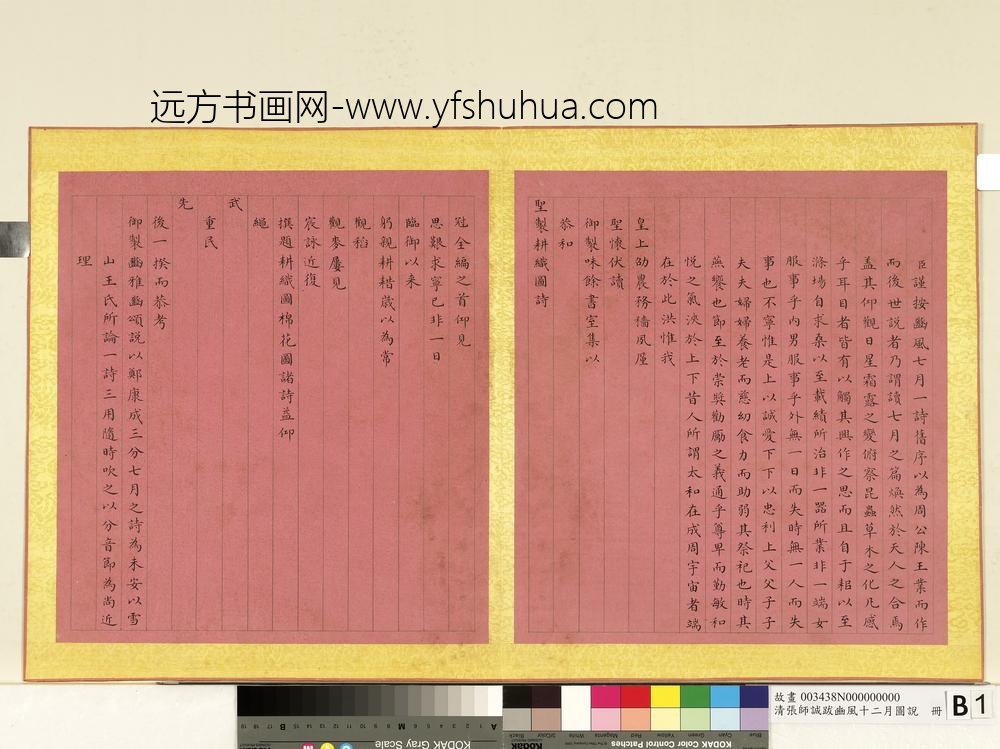 远方书画网-www.yfshuhua.com
臣謹按豳風七月一詩舊序以為周公陳王業而作
而後世說者乃謂讀七月之篇煥然於天人之合焉
蓋其仰觀日星霜露之變俯察昆蟲草木之化凡感
乎耳目者皆有以觸其興作之思而且自于耜以至
滌場自求桑以至載績所治非一器所業非一端女
服事乎內男服事乎外無一日而失時無一人而失
事也不寧惟是上以誠愛下下以忠利上父父子子
夫夫婦婦養老而慈幼食力而助弱其祭祀也時其
燕饗也節至於崇獎勸勵之義通乎尊卑而勤敏和
悅之氣浹於上下昔人所謂太和在成周宇宙者端
在於此洪惟我
皇上劭農務穡夙厪
聖懷伏讀
御製味餘書室集以
恭和
聖製耕織圖詩
冠全編之首仰見
思艱求寧已非一日
臨御以來
躬親耕耤歲以為常
觀稻
觀麥屢見
宸詠近復
撰題耕織圖棉花圖諸詩益仰
繩
武
重民
先
後一揆而恭考
御製豳雅豳頌說以鄭康成三分七月之詩為未安以雪
山王氏所論一詩三用隨時吹之以分音節為尚近
理
故畫 003438N000000000
清張師誠跋豳風十二月圖說 冊
B1
KODAK Gray Scale
KODAK Color Control Patches
Blue
Cyan
Green
Yellow
Red
Magenta
White
3/Color
Black